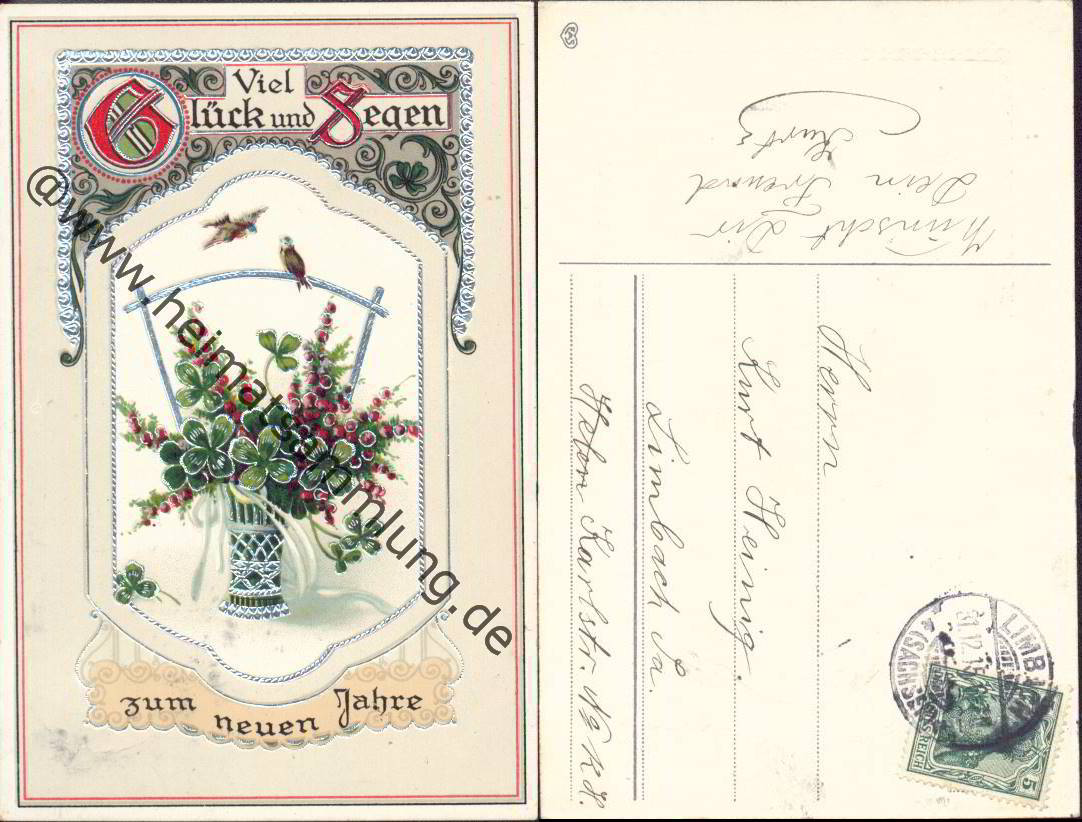 Viel
Glück und Segen
zum neuen Jahre
@www.heimatsammlung.de
Wünscht Dir
Dein Freund
Kurt
Herrn
Kurt Heinig.
Limbach Sa.
Karlstr. No
LIMB
(SACHSEN)
31.12.
5